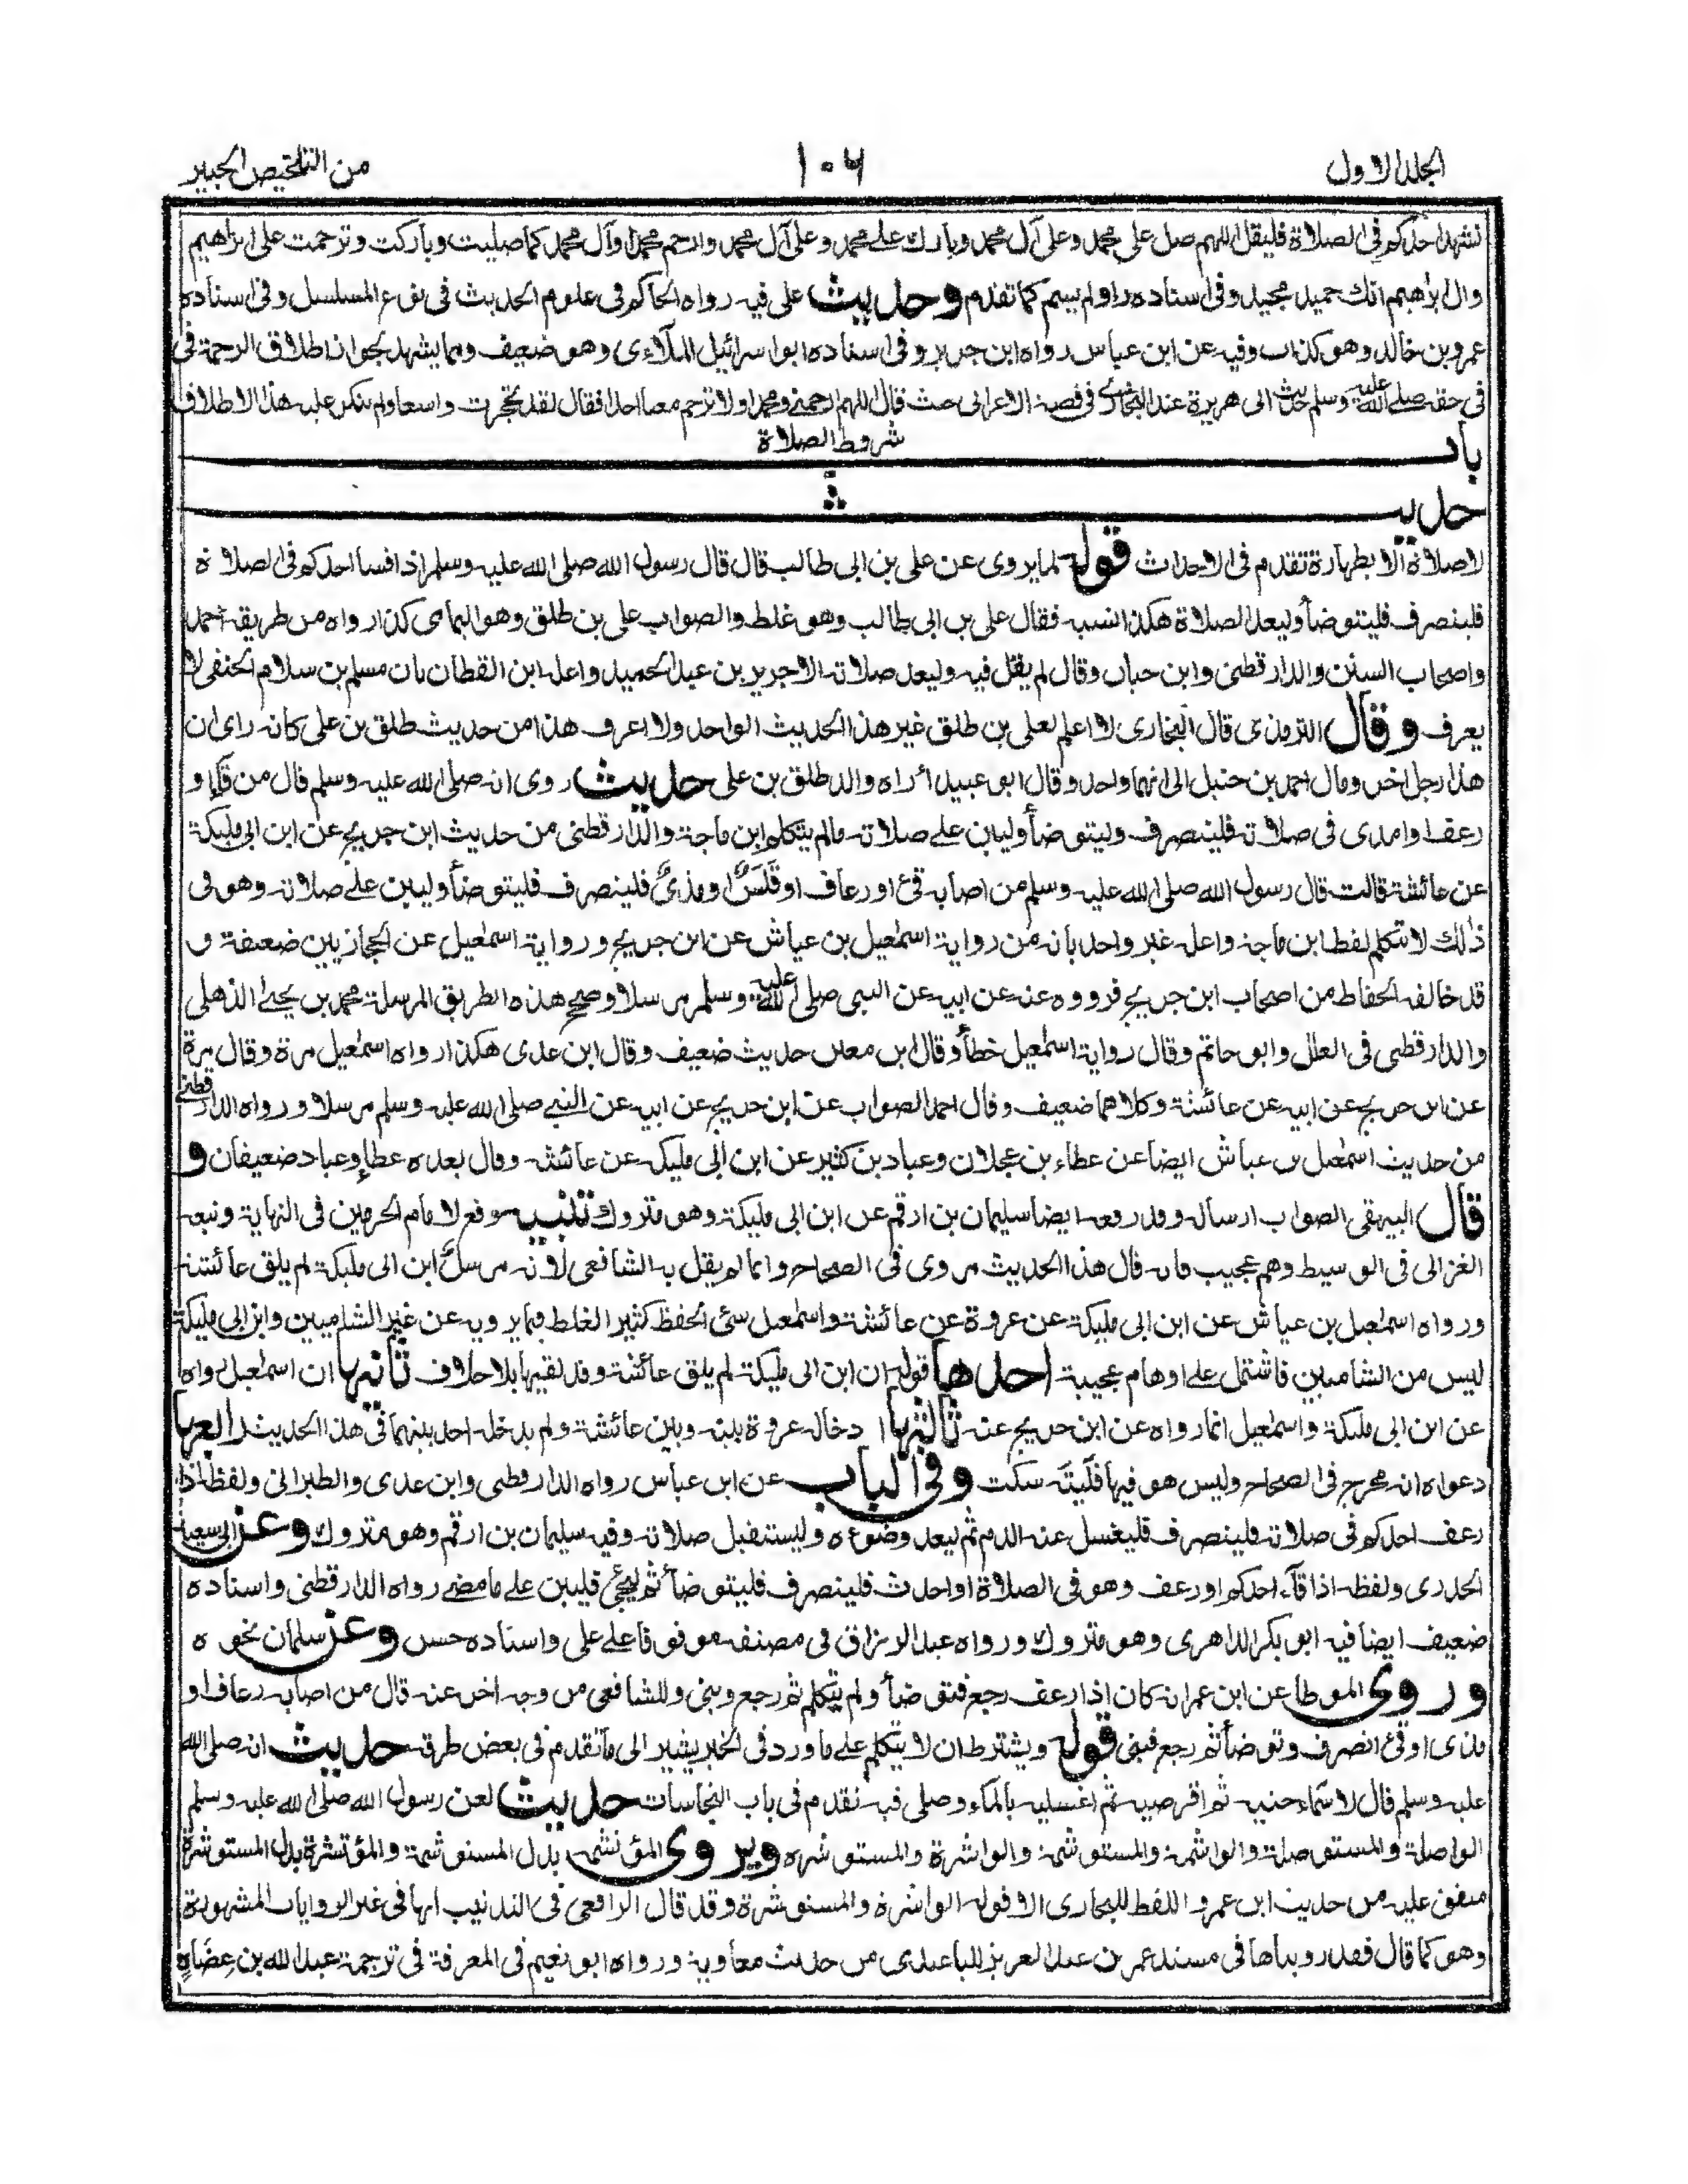 الجلد الاول
١٠٦
من التلخيص الحبير
تشهد احدكم فى الصلاة فليقل اللهم صل على محمد وعلى آل محمد وبارك على محمد وعلى آل محمد وارحم محمدا وآل محمد كما صليت وباركت وترحمت على ابراهيم
وال ابراهيم انك حميد مجيد وفى اسناده راو لم يسم كما تقدم وحديث على فيه رواه الحاكم فى علوم الحديث فى نوع المسلسل وفى اسناده
عمرو بن خالد وهو كذاب وفيه عن ابن عباس رواه ابن جرير وفى اسناده ابو اسرائيل الملاءى وهو ضعيف ومما يشهد لجواز اطلاق الرحمة فى
فى حقه صلى الله عليه وسلم حديث ابى هريرة عند البخارى فى قصة الاعرابى حيث قال اللهم ارحمنى ومحمدا ولا ترحم معنا احدا فقال لقد تحجرت واسعا ولم ينكر عليه هذا الاطلاق
باب شروط الصلاة
حديث
لا صلاة الا بطهارة تقدم فى الاحداث قوله لما يروى عن على بن ابى طالب قال قال رسول الله صلى الله عليه وسلم اذا فسا احدكم فى الصلاة
فلينصرف فليتوضأ وليعد الصلاة هكذا نسبه فقال على بن ابى طالب وهو غلط والصواب على بن طلق وهو اليمامى كذا رواه من طريقه احمد
واصحاب السنن والدارقطنى وابن حبان وقال لم يقل فيه وليعد صلاته الا جرير بن عبد الحميد واعله ابن القطان بان مسلم بن سلام الحنفى لا
يعرف وقال الترمذى قال البخارى لا اعلم لعلى بن طلق غير هذا الحديث الواحد ولا اعرف هذا من حديث طلق بن على كانه راى ان
هذا رجل اخر ومال احمد بن حنبل الى انهما واحد وقال ابو عبيد اراه والد طلق بن على حديث روى انه صلى الله عليه وسلم قال من قاء او
رعف او امذى فى صلاته فلينصرف وليتوضأ وليبن على صلاته مالم يتكلم ابن ماجة والدارقطنى من حديث ابن جريج عن ابن ابى مليكة
عن عائشة قالت قال رسول الله صلى الله عليه وسلم من اصابه قئ او رعاف او قلس او مذى فلينصرف فليتوضأ وليبن على صلاته وهو فى
ذلك لا يتكلم لفظ ابن ماجة واعله غير واحد بانه من رواية اسمعيل بن عياش عن ابن جريج ورواية اسمعيل عن الحجازيين ضعيفة و
قد خالفه الحفاظ من اصحاب ابن جريج فرووه عنه عن ابيه عن النبى صلى الله عليه وسلم مرسلا وصحح هذه الطريق المرسلة محمد بن يحيى الذهلى
والدارقطنى فى العلل وابو حاتم وقال رواية اسمعيل خطأ وقال ابن معين حديث ضعيف وقال ابن عدى هكذا رواه اسمعيل مرة وقال مرة
عن ابن جريج عن ابيه عن عائشة وكلاهما ضعيف وقال احمد الصواب عن ابن جريج عن ابيه عن النبى صلى الله عليه وسلم مرسلا ورواه الدارقطنى
من حديث اسمعيل بن عياش ايضا عن عطاء بن عجلان وعباد بن كثير عن ابن ابى مليكة عن عائشة وقال بعده عطاء وعباد ضعيفان و
قال البيهقى الصواب ارساله وقد رفعه ايضا سليمان بن ارقم عن ابن ابى مليكة وهو متروك تنبيه وقع لامام الحرمين فى النهاية وتبعه
الغزالى فى الوسيط وهم عجيب فانه قال هذا الحديث مروى فى الصحاح وانما لم يقل به الشافعى لانه مرسل ابن ابى مليكة لم يلق عائشة
ورواه اسمعيل بن عياش عن ابن ابى مليكة عن عروة عن عائشة واسمعيل سئ الحفظ كثير الغلط فيما يرويه عن غير الشاميين وابن ابى مليكة
ليس من الشاميين فاشتمل على اوهام عجيبة احدها قوله ان ابن ابى مليكة لم يلق عائشة وقد لقيها بلا خلاف ثانيها ان اسمعيل رواه
عن ابن ابى مليكة واسمعيل انما رواه عن ابن جريج عنه ثالثها ادخاله عروة بينه وبين عائشة ولم يدخله احد بينهما فى هذا الحديث رابعها
دعواه انه مخرج فى الصحاح وليس هو فيها فليته سكت وفى الباب عن ابن عباس رواه الدارقطنى وابن عدى والطبرانى ولفظه اذا
رعف احدكم فى صلاته فلينصرف فليغسل عنه الدم ثم ليعد وضوءه وليستقبل صلاته وفيه سليمان بن ارقم وهو متروك وعن ابى سعيد
الخدرى ولفظه اذا قاء احدكم او رعف وهو فى الصلاة او احدث فلينصرف فليتوضأ ثم ليجئ فليبن على ما مضى رواه الدارقطنى واسناده
ضعيف ايضا فيه ابو بكر الداهرى وهو متروك ورواه عبد الرزاق فى مصنفه موقوفا على على واسناده حسن وعن سلمان نحوه
وروى الموطا عن ابن عمر انه كان اذا رعف رجع فتوضأ ولم يتكلم ثم رجع وبنى وللشافعى من وجه اخر عنه قال من اصابه رعاف او
مذى او قئ انصرف وتوضأ ثم رجع فبنى قوله ويشترط ان لا يتكلم على ما ورد فى الخبر يشير الى ما تقدم فى بعض طرقه حديث انه صلى الله
عليه وسلم قال لاسماء حتيه ثم اقرصيه ثم اغسليه بالماء وصلى فيه تقدم فى باب النجاسات حديث لعن رسول الله صلى الله عليه وسلم
الواصلة والمستوصلة والواشمة والمستوشمة والواشرة والمستوشره ويروى المؤتشمة بدل المستوشمة والمؤتشرة بدل المستوشرة
متفق عليه من حديث ابن عمر واللفظ للبخارى الا قوله الواشرة والمستوشرة وقد قال الرافعى فى التذنيب انها فى غير الروايات المشهورة
وهو كما قال فقد رويناها فى مسند عمر بن عبد العزيز للباغندى من حديث معاوية ورواه ابو نعيم فى المعرفة فى ترجمة عبد الله بن عضاه